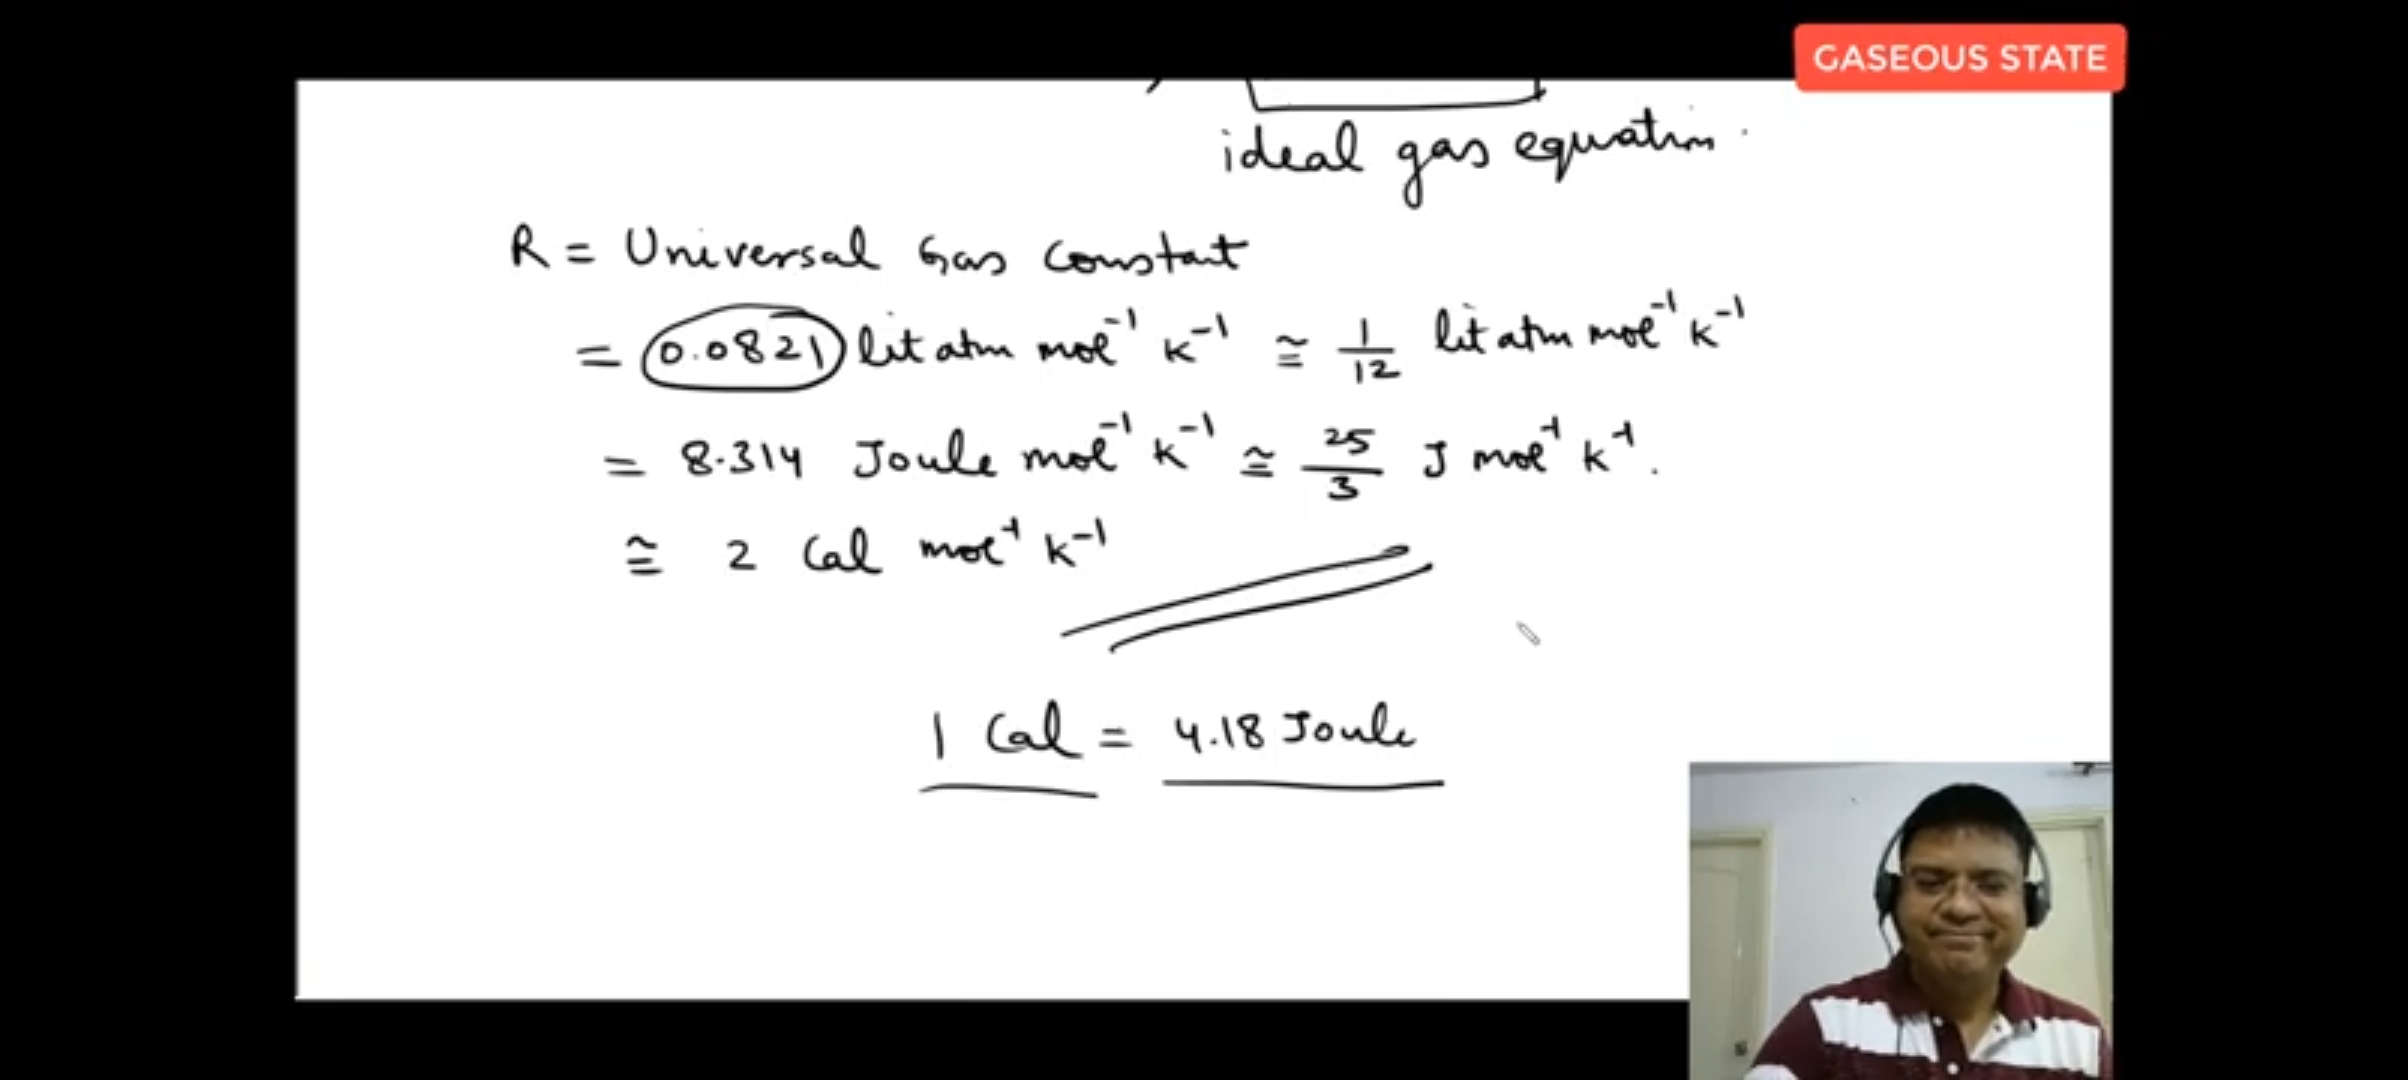 GASEOUS STATE
ideal gas equation.
R = Universal Gas constant
= 0.0821 lit atm mol⁻¹ K⁻¹ ≅ 1/12 lit atm mol⁻¹ K⁻¹
= 8.314 Joule mol⁻¹ K⁻¹ ≅ 25/3 J mol⁻¹ K⁻¹.
≅ 2 Cal mol⁻¹ K⁻¹
1 Cal = 4.18 Joule